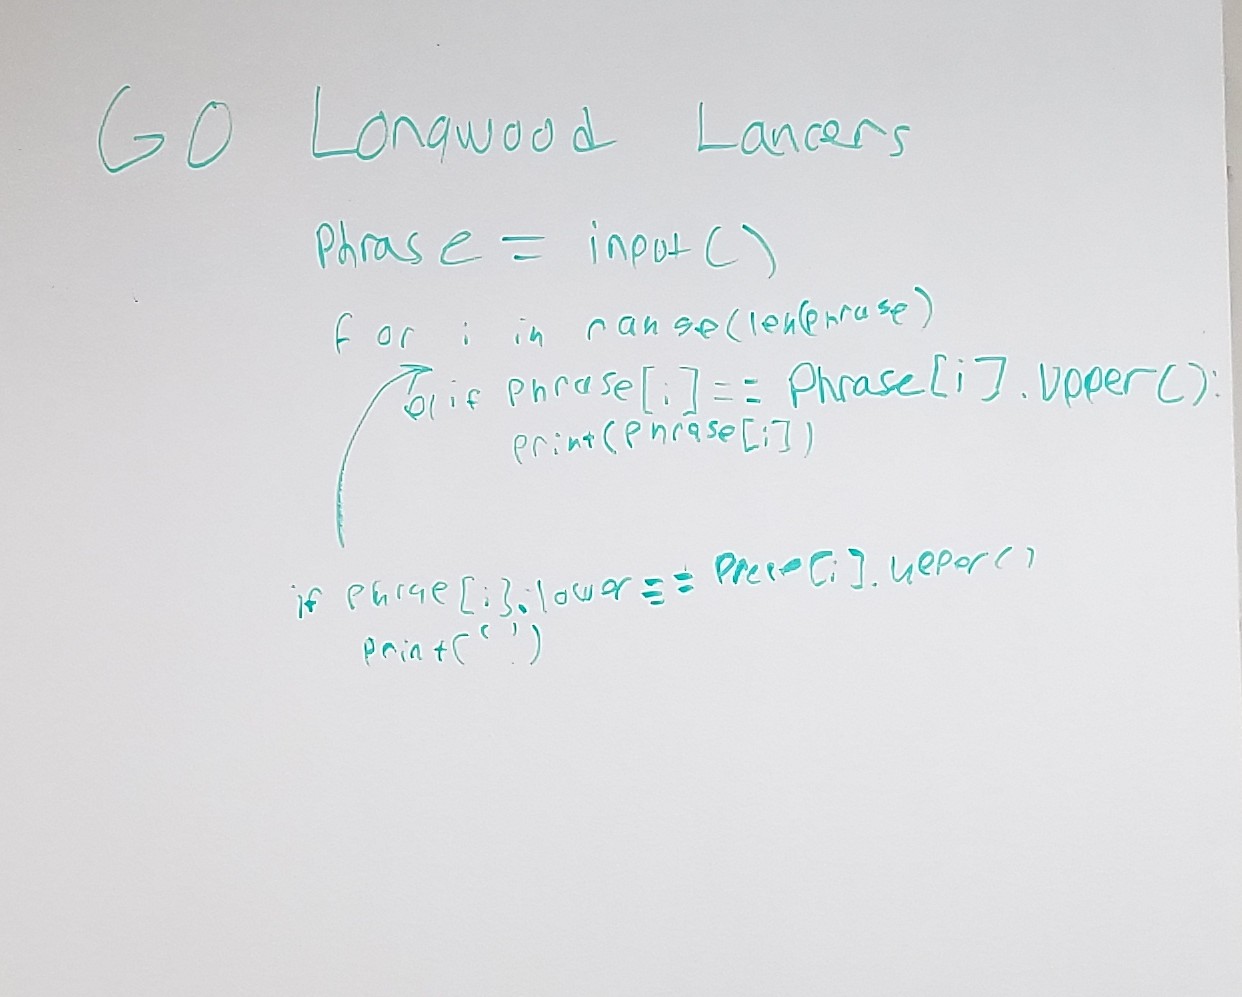 GO Longwood Lancers
Phrase = input()
for i in range(len(phrase)
elif phrase[i] == Phrase[i].upper():
print(phrase[i])
if phrae[i].lower == [i].upper()
print(' ')